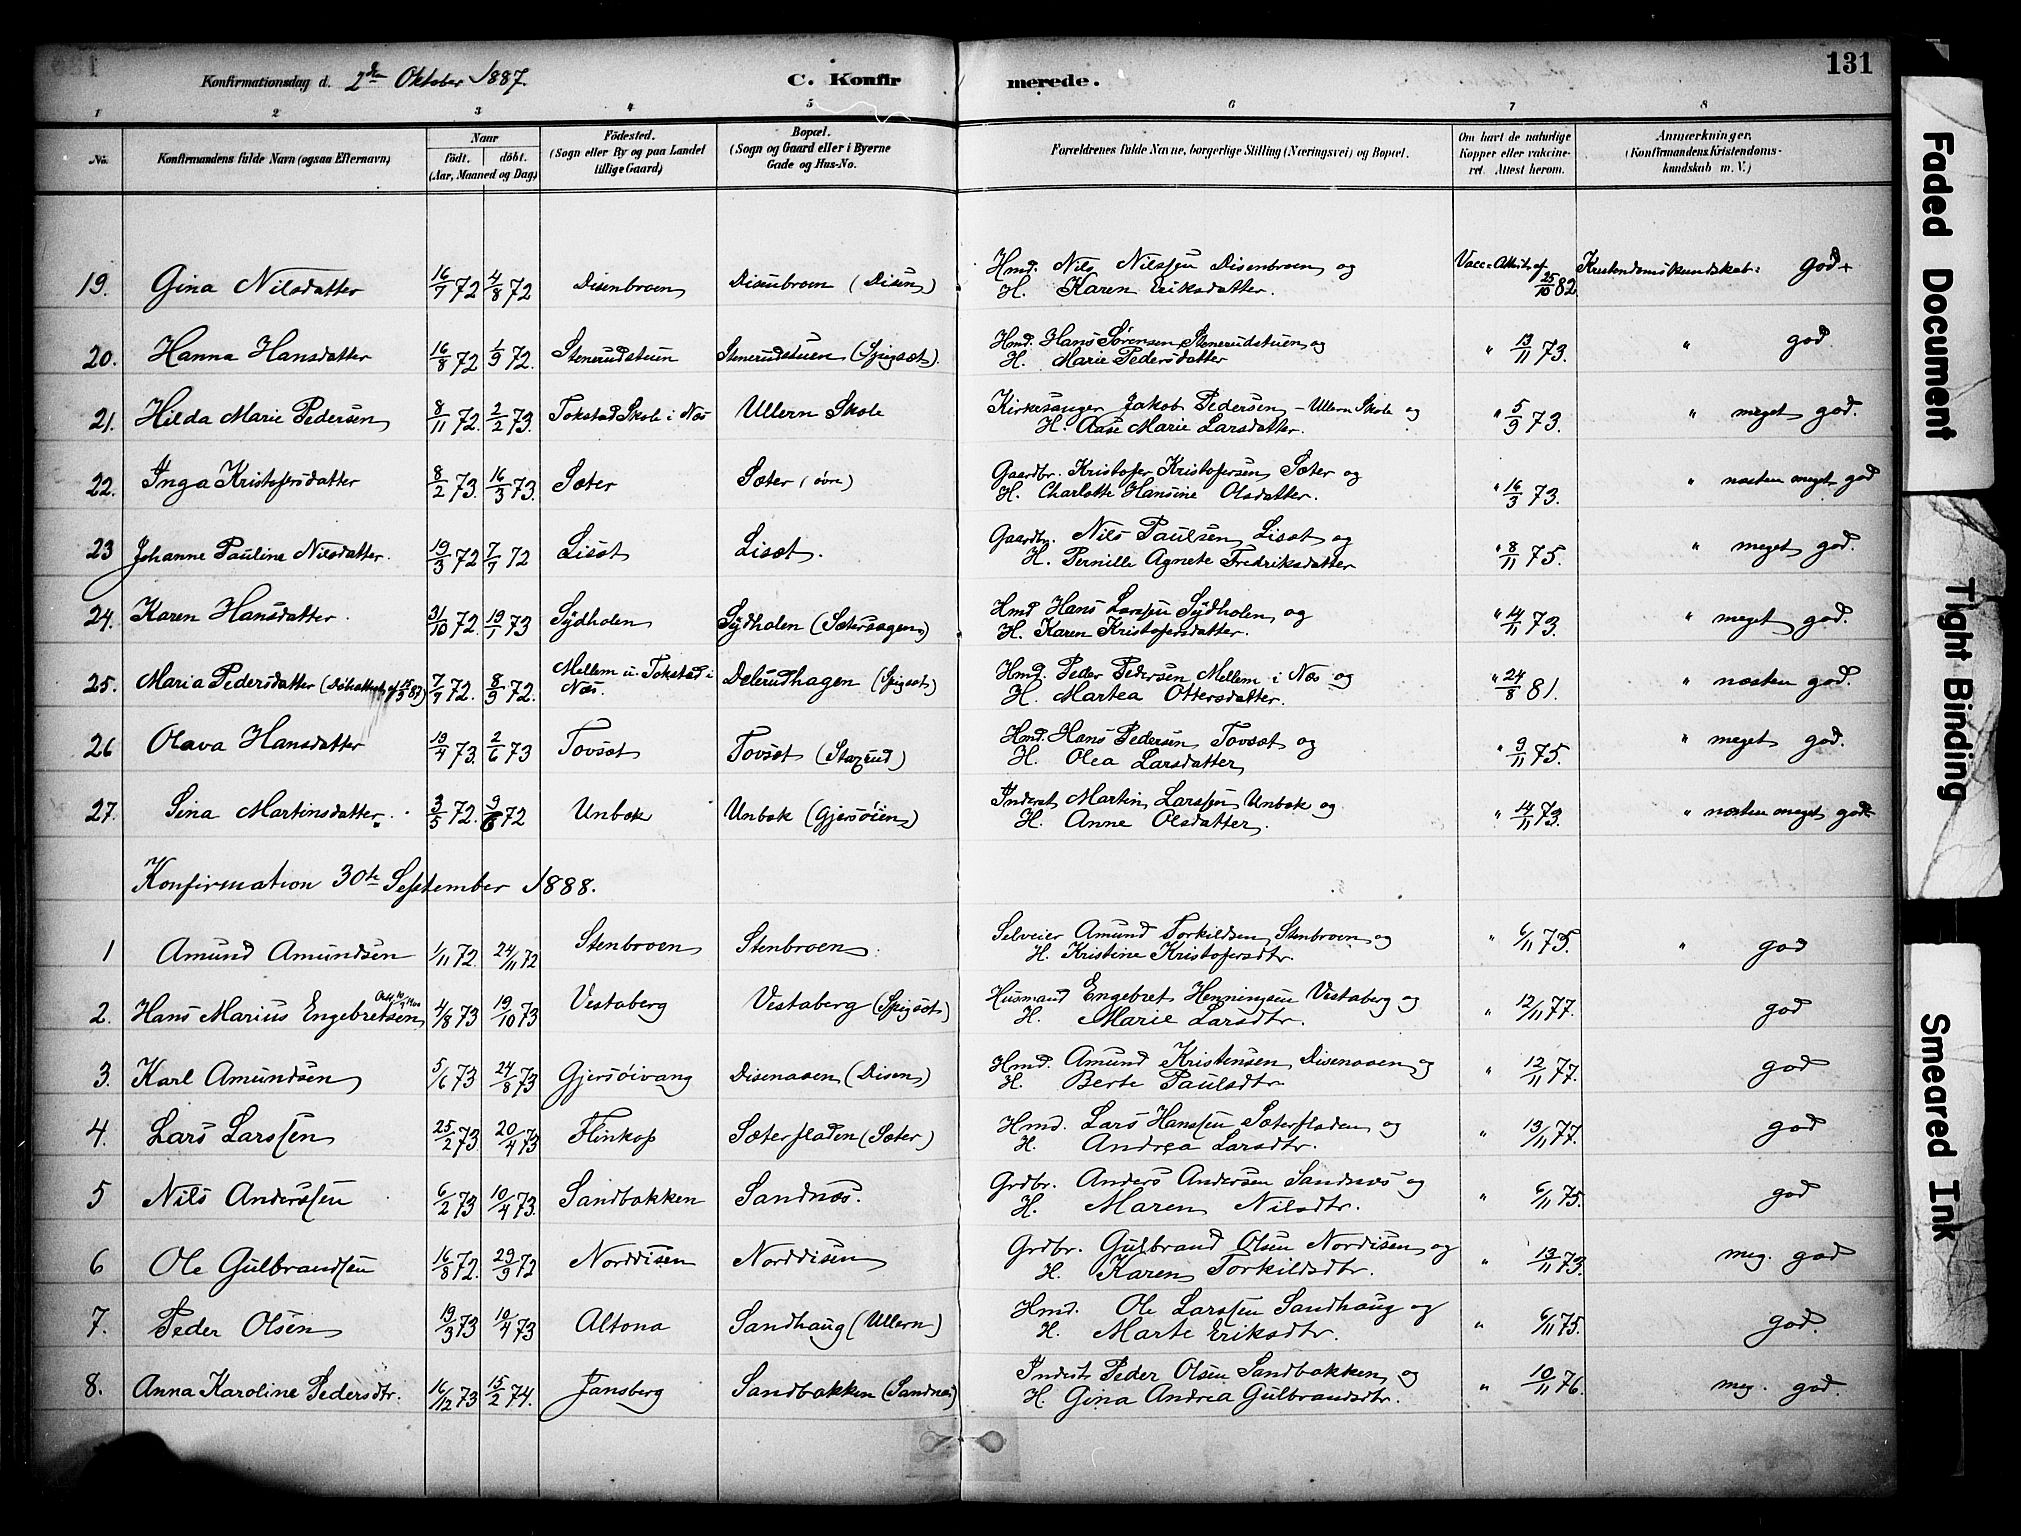 131
Konfirmationsdag d. 2den Oktober 1887. C. Konfirmerede.
1 2 3 4 5 6 7 8
No. Konfirmandens fulde Navn (ogsaa Efternavn) Naar födt. döbt. (Aar, Maaned og Dag) Födested. (Sogn eller By og paa Landet tillige Gaard) Bopæl. (Sogn og Gaard eller i Byerne Gade og Hus-No. Forældrenes fulde Navne, borgerlige Stilling (Næringsvei) og Bopæl. Om havt de naturlige Kopper eller vaccineret. Attest herom. Anmærkninger. (Konfirmandens Kristendomskundskab m. V.)
19. Gina Nilsdatter 16/7 72 4/8 72 Disenbroen Disenbroen (Disen) Hmd. Nils Nilssen Disenbroen og Vacc. Attest af 25/10 82 Kristendomskundskab: god+
H. Karen Eriksdatter.
20. Hanna Hansdatter 16/8 72 1/9 72. Stenerudstuen Stenerudstuen (Spigset). Hmd. Hans Sørensen Stenerudstuen og " 13/11 73. " god
H. Marie Pedersdatter
21. Hilda Marie Pedersen 8/11 72. 2/2 73. Tokstad Skole i Næs Ullern Skole Kirkesanger Jakob Pedersen - Ullern Skole og " 5/9 73. " meget god.
H. Aase Marie Larsdatter.
22. Inga Kristofersdatter 8/2 73. 16/3 73. Sæter Sæter (øvre) Gaardbr. Kristofer Kristofersen Sæter og " 16/3 73. " næsten meget god
H. Charlotte Hansine Olsdatter.
23 Johanne Pauline Nilsdatter. 19/3 72 7/7 72 Liset Liset. Gaardbr. Nils Paulsen Liset og " 8/11 75. " meget god.
H. Pernille Agnete Fredriksdatter
24. Karen Hansdatter. 31/10 72. 19/1 73 Sydholen Sydholen (Sætersagen) Hmd Hans Larssen Sydholen og " 14/11 73. " meget god.
H. Karen Kristofersdatter.
25. Maria Pedersdatter 7/7 72. 8/9 72. Mellem u. Tokstad i Næs. Delerudhagen (Spigset) Hmd. Peder Pedersen Mellem i Næs og " 24/8 81. " næsten god.
H. Martea Ottersdatter.
26 Olava Hansdatter 19/4 73. 2/6 73 Tovset Tovset (Staxrud) Hmd. Hans Pedersen Tovset og " 9/11 75. " meget god.
H. Olea Larsdatter
27. Sina Martinsdatter. 3/5 72. 9/6 72 Unbæk Unbæk (Gjersøien) Inderst Martin Larssen Unbæk og " 14/11 73. " næsten meget god
H. Anne Olsdatter.
Konfirmation 30te September 1888.
1 Amund Amundsen 1/11 72. 24/11 72 Stenbroen Stenbroen. Selveier Amund Torkildsen Stenbroen og " 6/11 75 " god
H. Kristine Kristofersdtr.
2. Hans Marius Engebretsen 4/8 73 19/10 73 Vestaberg Vestaberg (Spigset) Husmand Engebret Henningsen Vestaberg og " 12/11 77. god
H. Marie Larsdtr.
3. Karl Amundsen 5/6 73 24/8 73 Gjersöivang Disenaaen (Disen) Hmd. Amund Kristensen Disenaaen og " 12/11 77. god
H. Berte Paulsdtr
4. Lars Larssen 25/2 73. 20/4 73 Flinkop Sæterfladen (Sæter) Hmd. Lars Hanssen Sæterfladen og " 13/11 77. god
H. Andrea Larsdtr.
5 Nils Anderssen 6/2 73 10/4 73. Sandbakken Sandnæs. Grdbr. Anders Andersen Sandnæs og " 6/11 75. god
H. Maren Nilsdtr.
6 Ole Gulbrandsen 16/8 72. 29/9 72 Norddisen Norddisen Grdbr. Gulbrand Olsen Nordisen og " 13/11 73. meg. god
H. Karen Torkildsdtr.
7. Peder Olsen 19/3 73 10/4 73 Altona Sandhaug (Ullern) Hmd. Ole Larssen Sandhaug og " 6/11 75. god.
H. Marte Eriksdtr.
8. Anna Karoline Pedersdtr. 16/12 73 15/2 74. Jansberg Sandbakken (Sandnæs) Inderst Peder Olsen Sandbakken og " 10/11 76. meg. god.
H. Gina Andrea Gulbrandsdtr.
Faded Document
Tight Binding
Smeared Ink